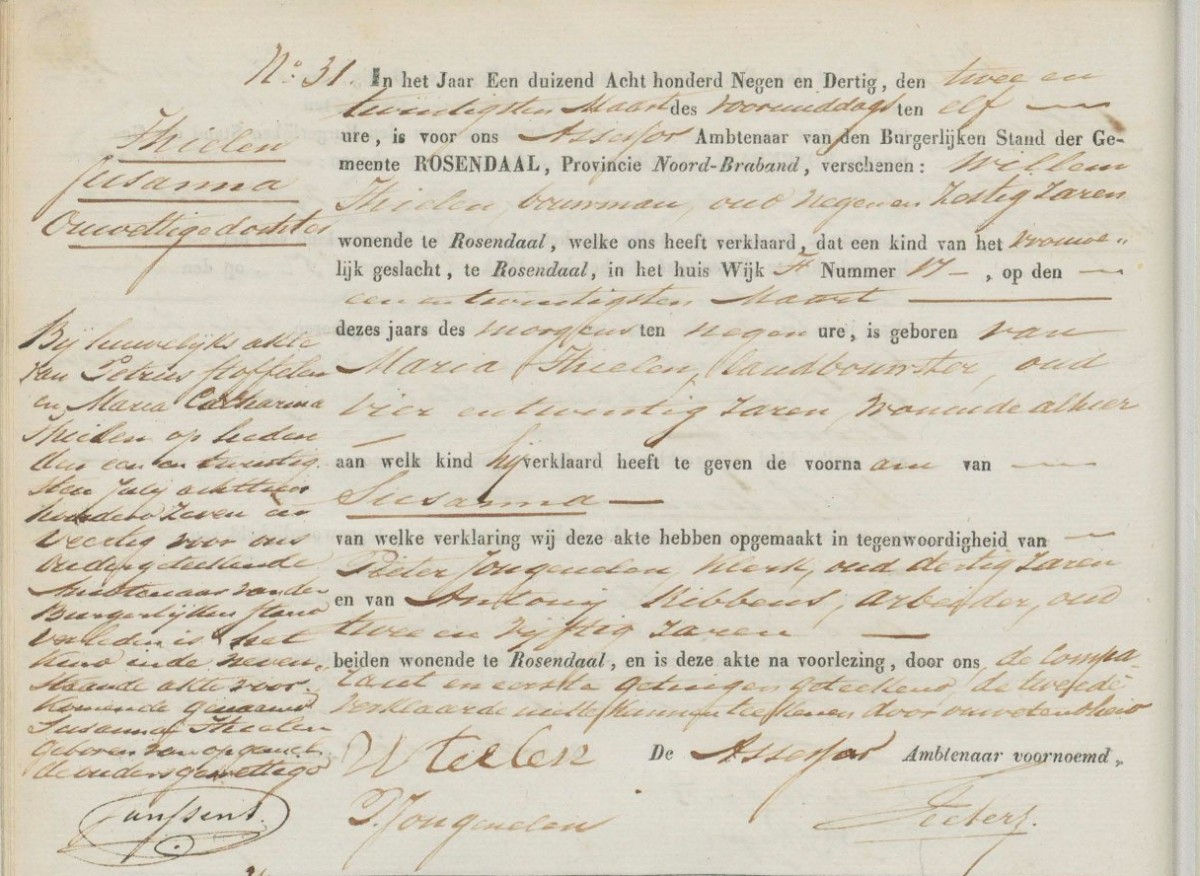 No. 31.
In het Jaar Een duizend Acht honderd Negen en Dertig, den twee en
twintigsten Maart des voormiddags ten elf
ure, is voor ons Assessor Ambtenaar van den Burgerlijken Stand der Ge-
meente ROSENDAAL, Provincie Noord-Braband, verschenen: Willem
Thielen, bouwman, oud negen en Zestig Jaren
wonende te Rosendaal, welke ons heeft verklaard, dat een kind van het vrouwe-
lijk geslacht, te Rosendaal, in het huis Wijk H Nummer 17 , op den
een en twintigsten Maart
dezes jaars des morgens ten negen ure, is geboren van
Maria Thielen, landbouwster, oud
vier en twintig Jaren, wonende alhier
aan welk kind hij verklaard heeft te geven de voorna am van
Susanna
van welke verklaring wij deze akte hebben opgemaakt in tegenwoordigheid van
Pieter Jongenelen, klerk, oud dertig Jaren
en van Antonij Ribbens, arbeider, oud
twee en vijftig Jaren
beiden wonende te Rosendaal, en is deze akte na voorlezing, door ons, de Compa-
rant en eerste getuigen geteekend, de tweede
verklaarde niet te kunnen teekenen door onwetenheid
W telen De Assessor Ambtenaar voornoemd,
P. Jongenelen
Thielen
Susanna
Onwettige dochter
Bij huwelijks akte
van Petrus Stoffelen
en Maria Catharina
Thielen op heden
den een en twintig
sten Julij achttien
honderd Zeven en
Veertig voor ons
Ondergeteekende
Ambtenaar van den
Burgerlijken Stand
verleden is het
kind in de neven-
staande akte voor-
komende genaamd
Susanna Thielen
geboren van opgemel-
de ouders gewettigd
Janssens.